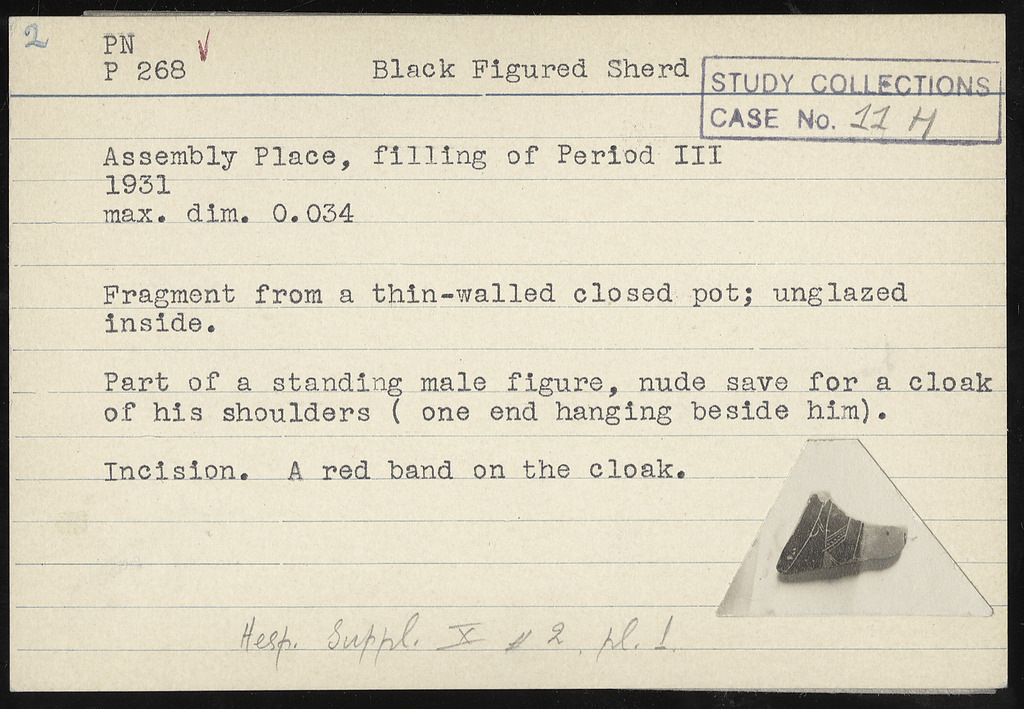 2
PN
P 268
Black Figured Sherd
STUDY COLLECTIONS
CASE No. 11 H
Assembly Place, filling of Period III
1931
max. dim. 0.034
Fragment from a thin-walled closed pot; unglazed
inside.
Part of a standing male figure, nude save for a cloak
of his shoulders ( one end hanging beside him).
Incision. A red band on the cloak.
Hesp. Suppl. X # 2, pl. 1.